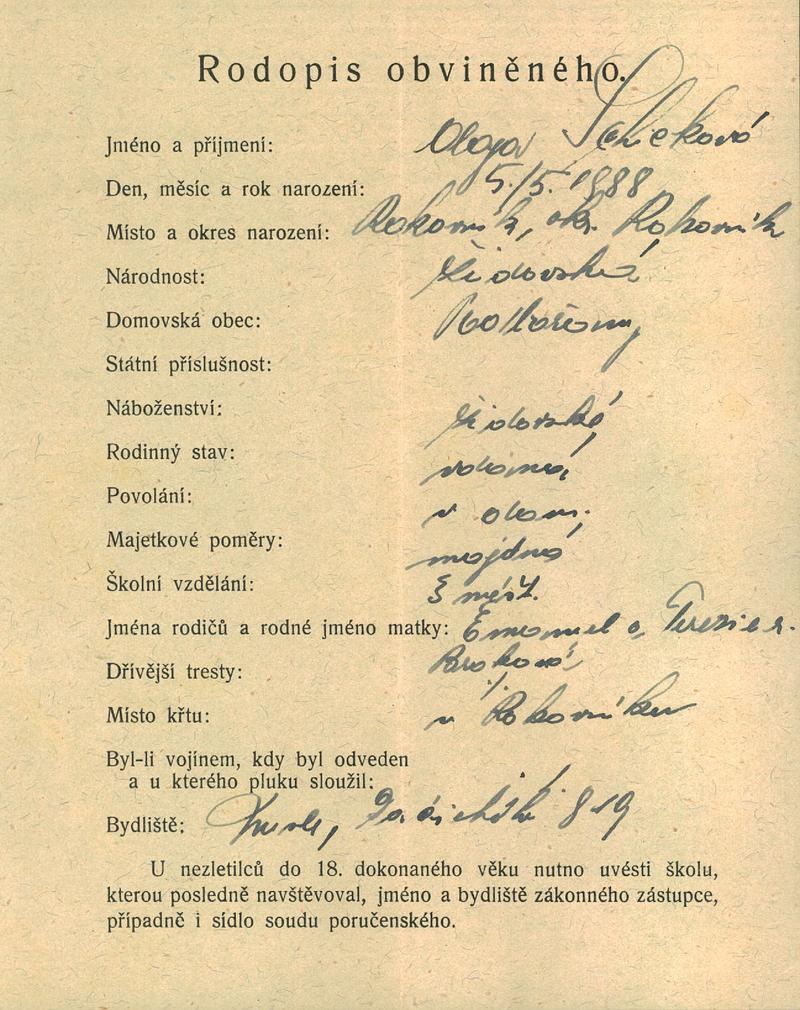 Rodopis obviněného.
Jméno a příjmení: Olga
Den, měsíc a rok narození: 5./5. 1888
Místo a okres narození: Rakovník, okr. Rakovník
Národnost: židovská
Domovská obec:
Státní příslušnost:
Náboženství: židovské
Rodinný stav: vdaná
Povolání: v dom.
Majetkové poměry:
Školní vzdělání: měšť.
Jména rodičů a rodné jméno matky: Emanuel a Terezie r.
Dřívější tresty:
Místo křtu: v Rakovníku
Byl-li vojínem, kdy byl odveden
a u kterého pluku sloužil:
Bydliště: 819
U nezletilců do 18. dokonaného věku nutno uvésti školu,
kterou posledně navštěvoval, jméno a bydliště zákonného zástupce,
případně i sídlo soudu poručenského.